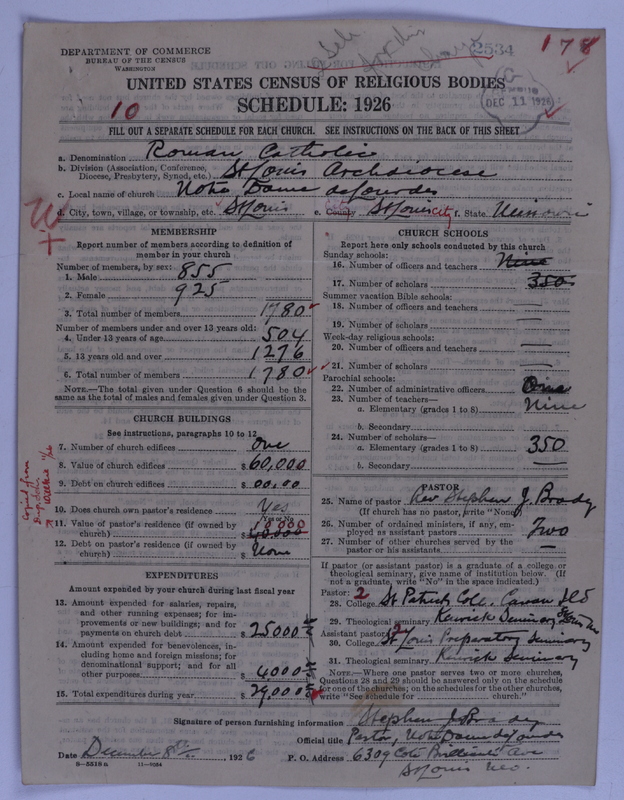 DEPARTMENT OF COMMERCE
BUREAU OF THE CENSUS
WASHINGTON
2534
178
DEC 11 1926
UNITED STATES CENSUS OF RELIGIOUS BODIES
SCHEDULE: 1926
10
FILL OUT A SEPARATE SCHEDULE FOR EACH CHURCH. SEE INSTRUCTIONS ON THE BACK OF THIS SHEET
a. Denomination Roman Catholic
b. Division (Association, Conference, Diocese, Presbytery, Synod, etc.) St Louis Archdiocese
c. Local name of church Notre Dame de Lourdes
d. City, town, village, or township, etc. St Louis e. County St Louis City f. State Missouri
MEMBERSHIP
Report number of members according to definition of
member in your church
Number of members, by sex:
1. Male 855
2. Female 925
3. Total number of members 1780
Number of members under and over 13 years old:
4. Under 13 years of age 504
5. 13 years old and over 1276
6. Total number of members 1780
NOTE.—The total given under Question 6 should be
same as the total of males and females given under Question 3.
CHURCH BUILDINGS
See instructions, paragraphs 10 to 12
7. Number of church edifices One
8. Value of church edifices $60,000
9. Debt on church edifices $00,00
10. Does church own pastor's residence? Yes
Yes or No
11. Value of pastor's residence (if owned by
church) $
12. Debt on pastor's residence (if owned by
church) $ None
Copied from
EXPENDITURES
Amount expended by your church during last fiscal year
13. Amount expended for salaries, repairs,
and other running expenses; for im-
provements or new buildings; and for
payments on church debt $25000
14. Amount expended for benevolences, in-
cluding home and foreign missions; for
denominational support; and for all
other purposes $4000
15. Total expenditures during year $29,000
CHURCH SCHOOLS
Report here only schools conducted by this church
Sunday schools:
16. Number of officers and teachers Nine
17. Number of scholars 350
Summer vacation Bible schools:
18. Number of officers and teachers —
19. Number of scholars —
Week-day religious schools:
20. Number of officers and teachers —
21. Number of scholars —
Parochial schools:
22. Number of administrative officers One
23. Number of teachers—
a. Elementary (grades 1 to 8) Nine
b. Secondary
24. Number of scholars—
a. Elementary (grades 1 to 8) 350
b. Secondary —
PASTOR
25. Name of pastor Rev. Stephen J. Brady
(If church has no pastor, write "None")
26. Number of ordained ministers, if any, em-
ployed as assistant pastors Two
27. Number of other churches served by the
pastor or his assistants —
If pastor (or assistant pastor) is a graduate of a college or
theological seminary, give name of institution below. (If
not a graduate, write "No" in the space indicated.)
Pastor: 2
28. College St Patrick Coll. Cavan
29. Theological seminary Kenrick Seminary
Assistant pastor: 2
30. College St Louis Preparatory Seminary
31. Theological seminary Kenrick Seminary
NOTE.—Where one pastor serves two or more churches,
Questions 28 and 29 should be answered only on the schedule
for one of the churches; on the schedules for the other churches,
write "See schedule for church."
Signature of person furnishing information Stephen J. Brady
Official title Pastor, Notre Dame de Lourdes
Date December 8th, 1926 P. O. Address 6309 Cote Brilliante Ave
St Louis Mo.
8—5518 a 11—9034